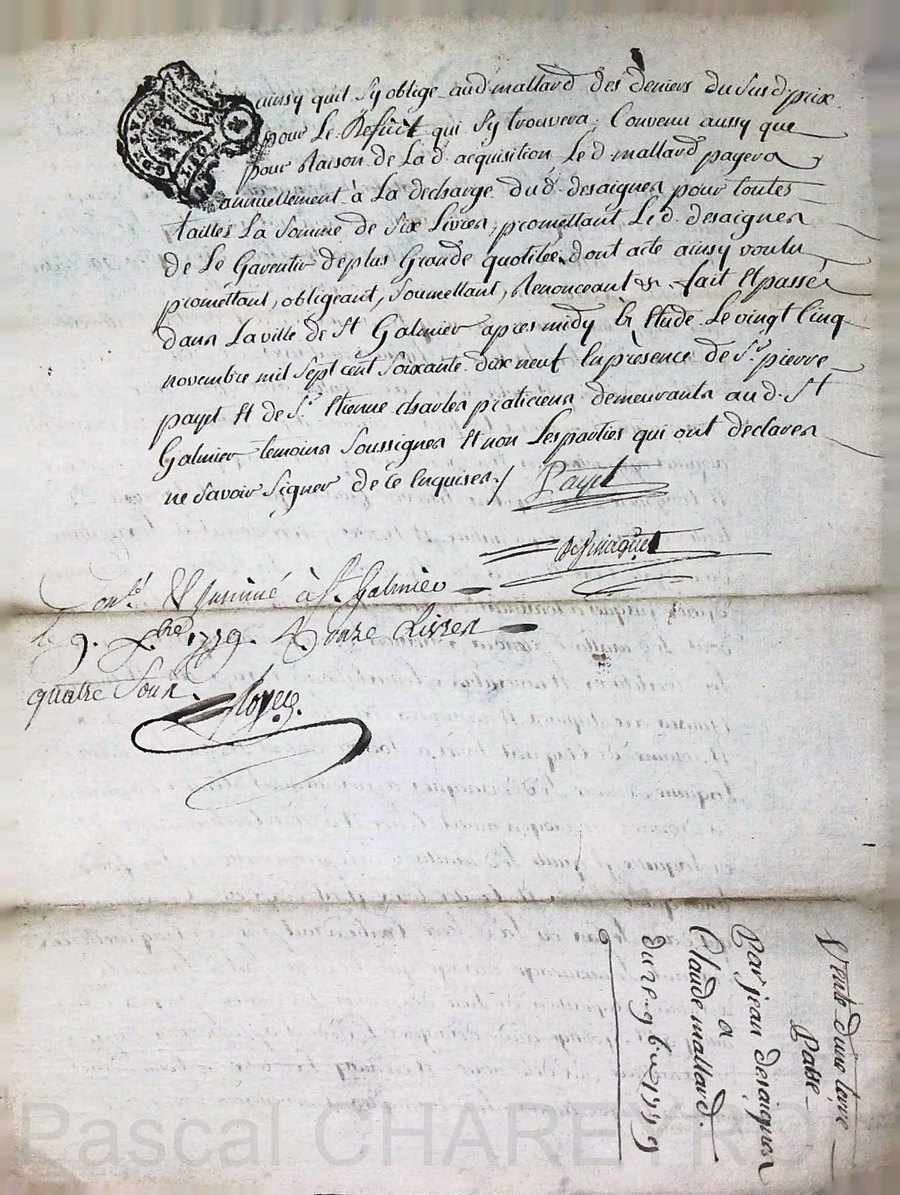 ainsy quil Sy oblige aud mallard des deniers du Susd. prix
pour Le Deficit qui sy trouvera ; Convenu aussy que
pour Raison de La d. acquisition Le d. mallard payera
annuellement à La decharge du d. desaignes pour toutes
tailles La Somme de Six Livres, promettant Le d. desaignes
de Le Garentir de plus Grande quotitée, dont acte ainsy voulu
promettant, obligeant, Soumettant, Renonceant &c. fait Et passé
dans La ville de St Galmier apres midy Ez Etude Le vingt Cinq
novembre mil Sept Cent Soixante dix neuf En presence de Sr. pierre
payet Et de Sr. Etienne charles praticiens demeurants au d. St
Galmier temoins Soussignes Et non Les parties qui ont declarer
ne Savoir Signer de Ce Enquises./ Payet
Conlé Et Insinué à St. Galmier
le 9. Xbre 1779. R Onze Livres
quatre Sous.
Vente d'une terre
Passé
Par jean desaignes
a
Claude mallard.
du 25. 9bre 1779
Pascal CHAREYRO